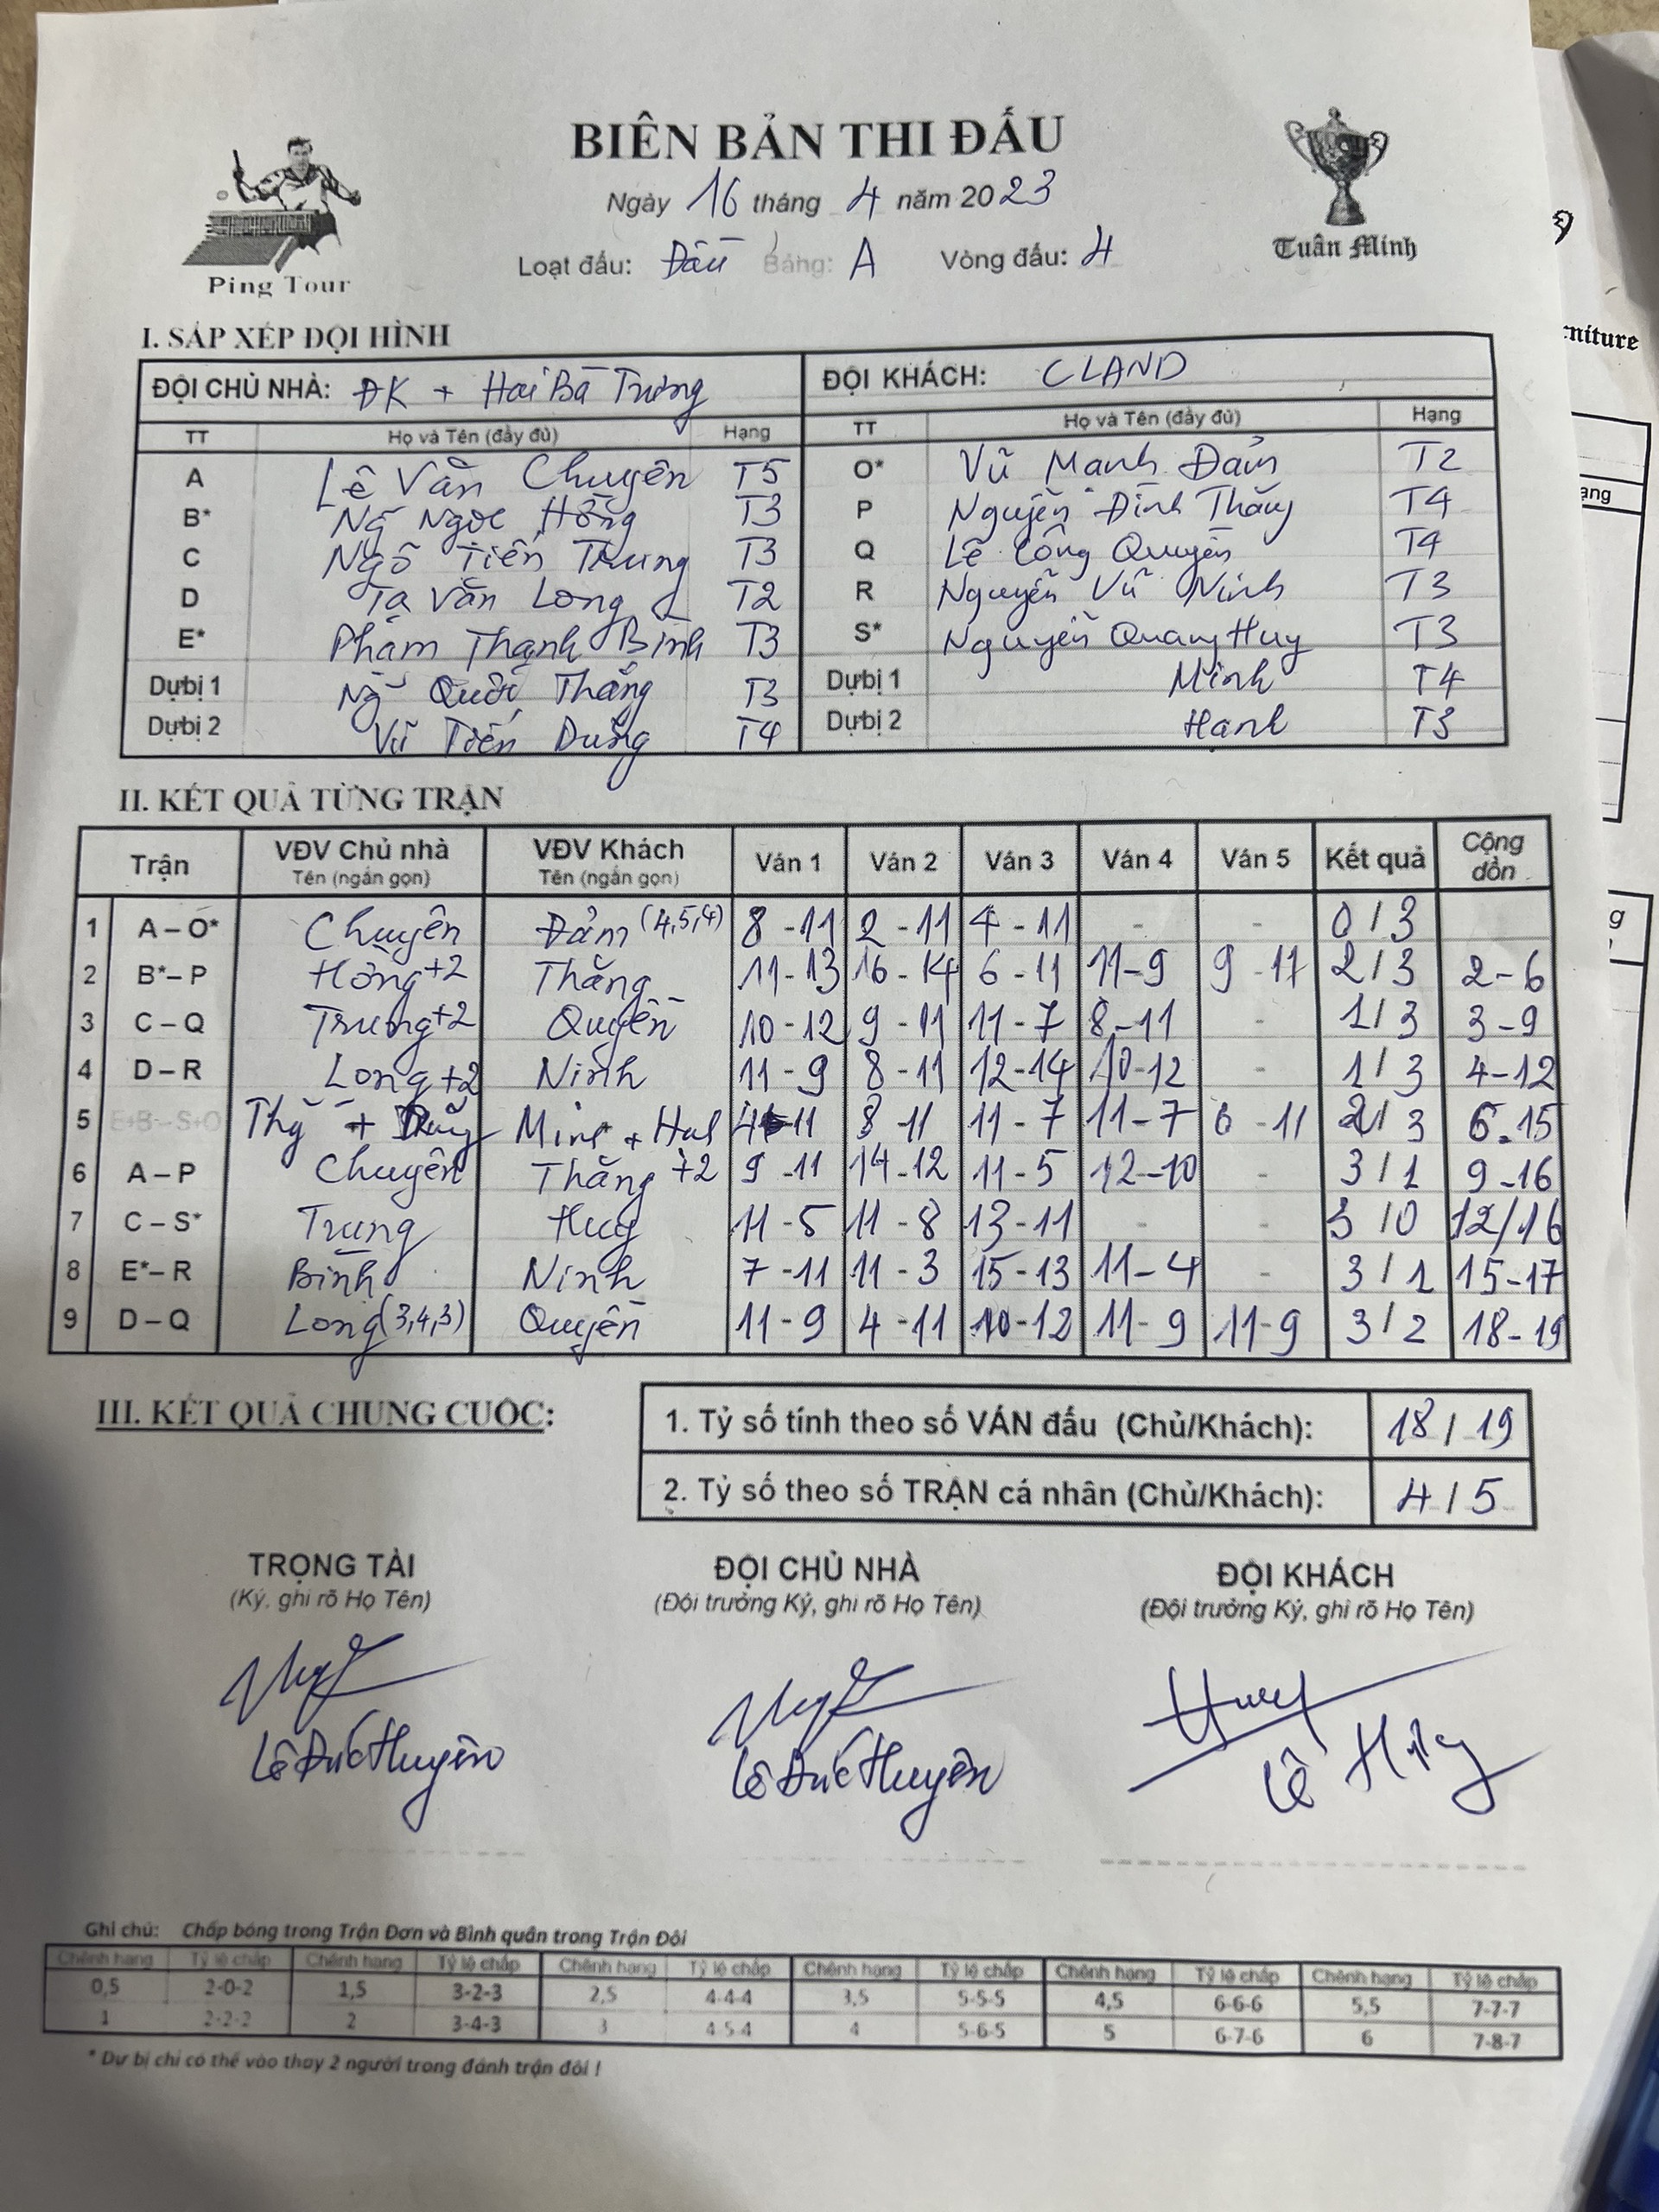 BIÊN BẢN THI ĐẤU
Ngày 16 tháng 4 năm 2023
Loạt đấu: Đấu Bảng: A Vòng đấu: 4
Ping Tour
Tuấn Minh
niture
I. SẮP XẾP ĐỘI HÌNH
ĐỘI CHỦ NHÀ: ĐK + Hai Bà Trưng ĐỘI KHÁCH: CLAND
TT Họ và Tên (đầy đủ) Hạng TT Họ và Tên (đầy đủ) Hạng
A Lê Văn Chuyên T5 O* Vũ Mạnh Đảm T2
B* Ng Ngọc Hồng T3 P Nguyễn Đình Thắng T4
C Ngô Tiến Trung T3 Q Lê Công Quyền T4
D Tạ Văn Long T2 R Nguyễn Vũ Ninh T3
E* Phạm Thanh Bình T3 S* Nguyễn Quang Huy T3
Dự bị 1 Ng Quốc Thắng T3 Dự bị 1 Minh T4
Dự bị 2 Vũ Tiến Dũng T4 Dự bị 2 Hạnh T3
II. KẾT QUẢ TỪNG TRẬN
Trận VĐV Chủ nhà VĐV Khách Ván 1 Ván 2 Ván 3 Ván 4 Ván 5 Kết quả Cộng dồn
Tên (ngắn gọn) Tên (ngắn gọn)
1 A – O* Chuyên Đảm (4,5,4) 8 - 11 2 - 11 4 - 11 - - 0 / 3
2 B* – P Hồng +2 Thắng 11 - 13 16 - 14 6 - 11 11 - 9 9 - 11 2 / 3 2 - 6
3 C – Q Trung +2 Quyền 10 - 12 9 - 11 11 - 7 8 - 11 - 1 / 3 3 - 9
4 D – R Long +2 Ninh 11 - 9 8 - 11 12 - 14 10 - 12 - 1 / 3 4 - 12
5 E+B – S+O + + 11 8 - 11 11 - 7 11 - 7 6 - 11 2 / 3 6 - 15
6 A – P Chuyên Thắng +2 9 - 11 14 - 12 11 - 5 12 - 10 - 3 / 1 9 - 16
7 C – S* Trung Huy 11 - 5 11 - 8 13 - 11 - - 3 / 0 12/16
8 E* – R Bình Ninh 7 - 11 11 - 3 15 - 13 11 - 4 - 3 / 1 15 - 17
9 D – Q Long (3,4,3) Quyền 11 - 9 4 - 11 10 - 12 11 - 9 11 - 9 3 / 2 18 - 19
III. KẾT QUẢ CHUNG CUỘC:
1. Tỷ số tính theo số VÁN đấu (Chủ/Khách): 18 / 19
2. Tỷ số theo số TRẬN cá nhân (Chủ/Khách): 4 / 5
TRỌNG TÀI ĐỘI CHỦ NHÀ ĐỘI KHÁCH
(Ký, ghi rõ Họ Tên) (Đội trưởng Ký, ghi rõ Họ Tên) (Đội trưởng Ký, ghi rõ Họ Tên)
Lê Đức Huyên Lê Đức Huyên Lê Huy
Ghi chú: Chấp bóng trong Trận Đơn và Bình quân trong Trận Đôi
Chênh hạng Tỷ lệ chấp Chênh hạng Tỷ lệ chấp Chênh hạng Tỷ lệ chấp Chênh hạng Tỷ lệ chấp Chênh hạng Tỷ lệ chấp Chênh hạng Tỷ lệ chấp
0,5 2-0-2 1,5 3-2-3 2,5 4-4-4 3,5 5-5-5 4,5 6-6-6 5,5 7-7-7
1 2-2-2 2 3-4-3 3 4-5-4 4 5-6-5 5 6-7-6 6 7-8-7
* Dự bị chỉ có thể vào thay 2 người trong đánh trận đôi !